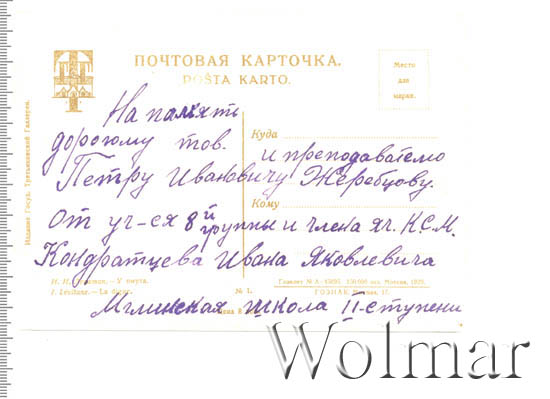 ПОЧТОВАЯ КАРТОЧКА.
POŜTA KARTO.
Место
для
марки.
Издание Госуд. Третьяковской Галлереи.
На память
дорогому тов.
Куда
и преподавателю
Петру Ивановичу Жеребцову.
Кому
От уч-ся 8й группы и члена яч. К.С.М.
Кондратцева Ивана Яковлевича
И. И. —У омута.
I. Levitane.—La
№ 1.
Главлит № А
Москва, 1929.
ГОЗНАК.
Мглинская школа II-ступени
Цена 8
Wolmar